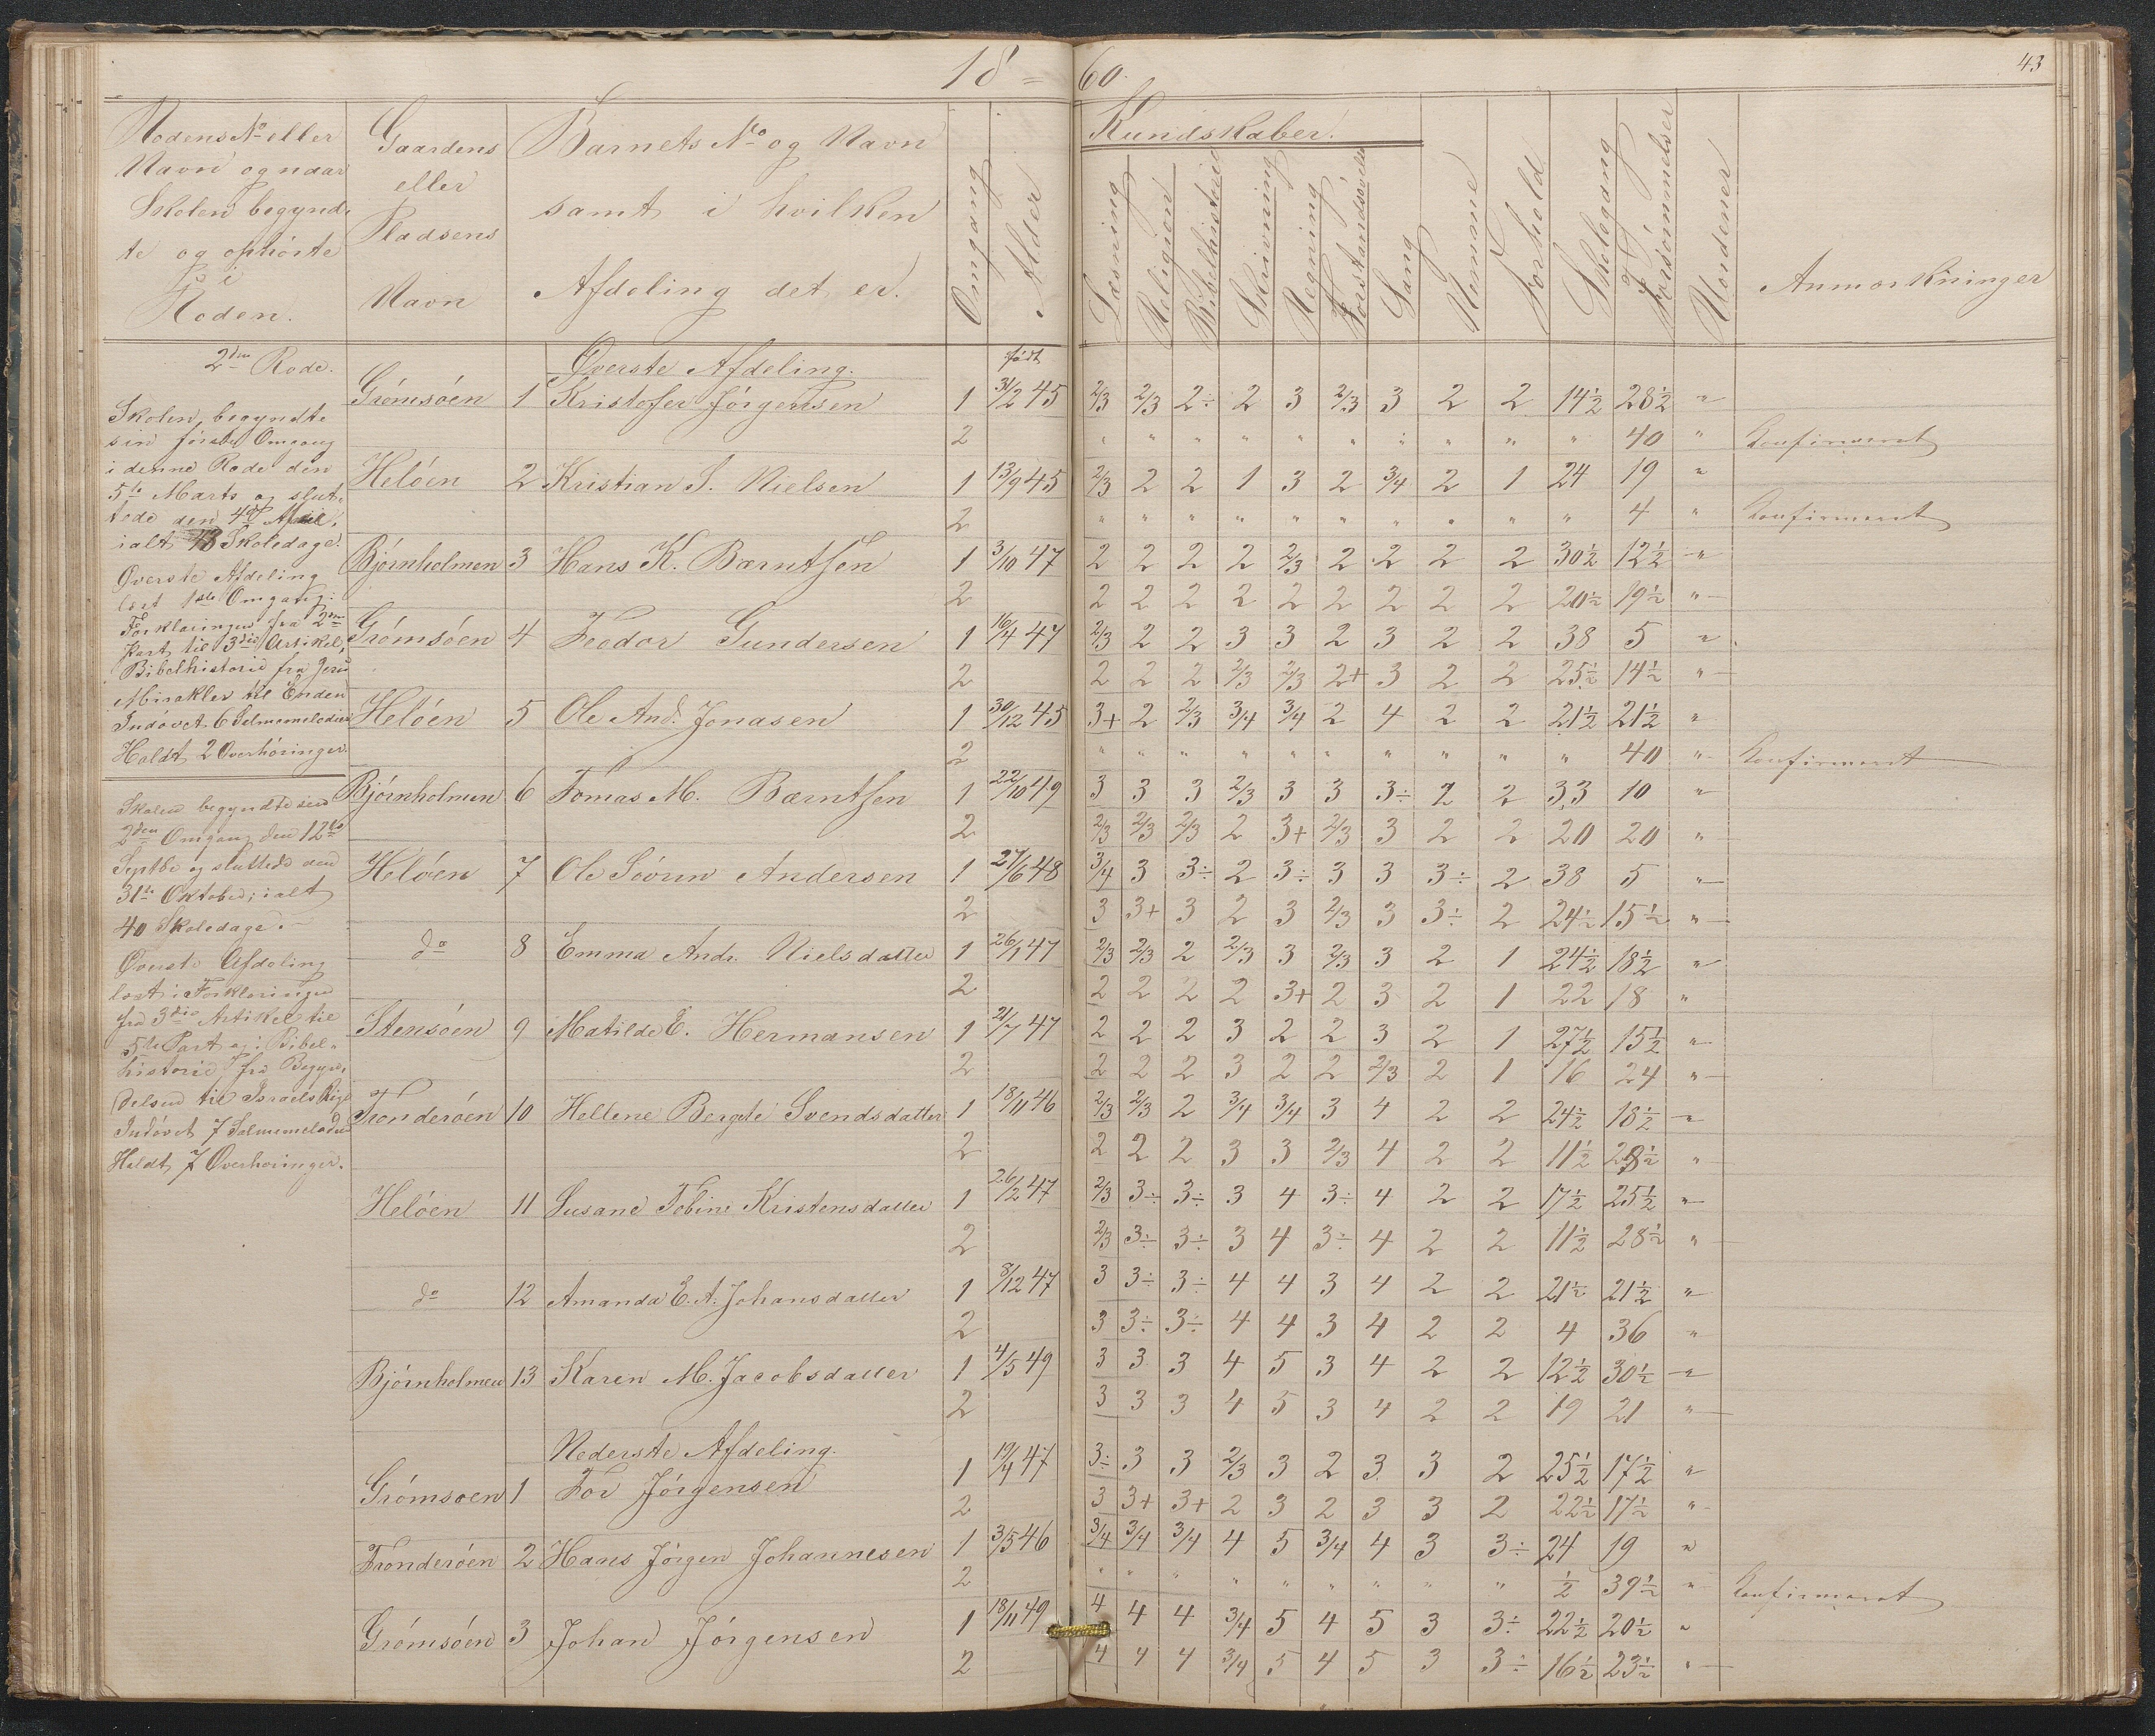 18 = 60.
43
Rodens No eller
Navn og naar
Skolen begynd-
te og ophørte
i
Roden.
Gaardens
eller
Pladsens
Navn
Barnets No og Navn
samt i hvilken
Afdeling det er.
Omgang
Alder
Kundskaber.
Læsning
Religion
Bibelhistorie
Skrivning
Regning
Forstandsøvelse
Sang
Nemme
Forhold
Skolegang
Forsømmelser
Uordener
Anmærkninger
2den Rode.
Skolen begyndte
sin første Omgang
i denne Rode den
5te Marts og slut-
tede den 4de April,
ialt 43 Skoledage.
Øverste Afdeling
læst 1ste Omgang:
Forklaringen fra 2den
Part til 3die Artikel,
Bibelhistorie fra Jesu
Mirakler til Enden
Indøvet 6 Salmemelodier
Holdt 2 Overhøringer.
Skolen begyndte sin
2den Omgang den 12te
Septbr og sluttede den
31te Oktober; ialt
40 Skoledage.
Øverste Afdeling
læst i Forklaringen
fra 3die Artikel til
5te Part og i Bibel-
historie fra Begyn-
delsen til Israels Rige
Indøvet 7 Salmemelodier
Holdt 7 Overhøringer.
Øverste Afdeling.
født
Grømsøen 1 Kristofer Jørgensen 1 31/2 45 2/3 2/3 2÷ 2 3 2/3 3 2 2 14½ 28½ "
2 " " " " " " " " " " 40 " Konfirmeret
Heløen 2 Kristian S. Nielsen 1 13/9 45 2/3 2 2 1 3 2 3/4 2 1 24 19 "
2 " " " " " " " " " " 4 " Konfirmeret
Bjørnholmen 3 Hans K. Bærntsen 1 3/10 47 2 2 2 2 2/3 2 2 2 2 30½ 12½ "
2 2 2 2 2 2 2 2 2 2 20½ 19½ "
Grømsøen 4 Teodor Gundersen 1 16/4 47 2/3 2 2 3 3 2 3 2 2 38 5 "
2 2 2 2 2/3 2/3 2+ 3 2 2 25½ 14½ "
Heløen 5 Ole And. Jonasen 1 30/12 45 3+ 2 2/3 3/4 3/4 2 4 2 2 21½ 21½ "
2 " " " " " " " " " " 40 " Konfirmeret
Bjørnholmen 6 Tomas M. Bærntsen 1 22/10 49 3 3 3 2/3 3 3 3÷ 2 2 33 10 "
2 2/3 2/3 2/3 2 3+ 2/3 3 2 2 20 20 "
Heløen 7 Ole Søvrin Andersen 1 27/6 48 3/4 3 3÷ 2 3÷ 3 3 3÷ 2 38 5 "
2 3 3+ 3 2 3 2/3 3 3÷ 2 24½ 15½ "
do 8 Emma Andr. Nielsdatter 1 26/1 47 2/3 2/3 2 2/3 3 2/3 3 2 1 24½ 18½ "
2 2 2 2 2 3+ 2 3 2 1 22 18 "
Stensøen 9 Matilde E. Hermansen 1 21/7 47 2 2 2 3 2 2 3 2 1 27½ 15½ "
2 2 2 2 3 2 2 2/3 2 1 16 24 "
Tronderøen 10 Hellene Bergite Svendsdatter 1 18/11 46 2/3 2/3 2 3/4 3/4 3 4 2 2 24½ 18½ "
2 2 2 2 3 3 2/3 4 2 2 11½ 28½ "
Heløen 11 Susane Tobine Kristensdatter 1 26/12 47 2/3 3÷ 3÷ 3 4 3÷ 4 2 2 17½ 25½ "
2 2/3 3÷ 3÷ 3 4 3÷ 4 2 2 11½ 28½ "
do 12 Amanda E. A. Johansdatter 1 8/12 47 3 3÷ 3÷ 4 4 3 4 2 2 21½ 21½ "
2 3 3÷ 3÷ 4 4 3 4 2 2 4 36 "
Bjørnholmen 13 Karen M. Jacobsdatter 1 4/5 49 3 3 3 4 5 3 4 2 2 12½ 30½ "
2 3 3 3 4 5 3 4 2 2 19 21 "
Nederste Afdeling.
Grømsøen 1 Tor Jørgensen 1 19/4 47 3÷ 3 3 2/3 3 2 3 3 2 25½ 17½ "
2 3 3+ 3+ 2 3 2 3 3 2 22½ 17½ "
Tronderøen 2 Hans Jørgen Johannesen 1 3/5 46 3/4 3/4 3/4 4 5 3/4 4 3 3÷ 24 19 "
2 " " " " " " " " " ½ 39½ " Konfirmeret
Grømsøen 3 Johan Jørgensen 1 18/11 49 4 4 4 3/4 5 4 5 3 3÷ 22½ 20½ "
2 4 4 4 3/4 5 4 5 3 3÷ 16½ 23½ "